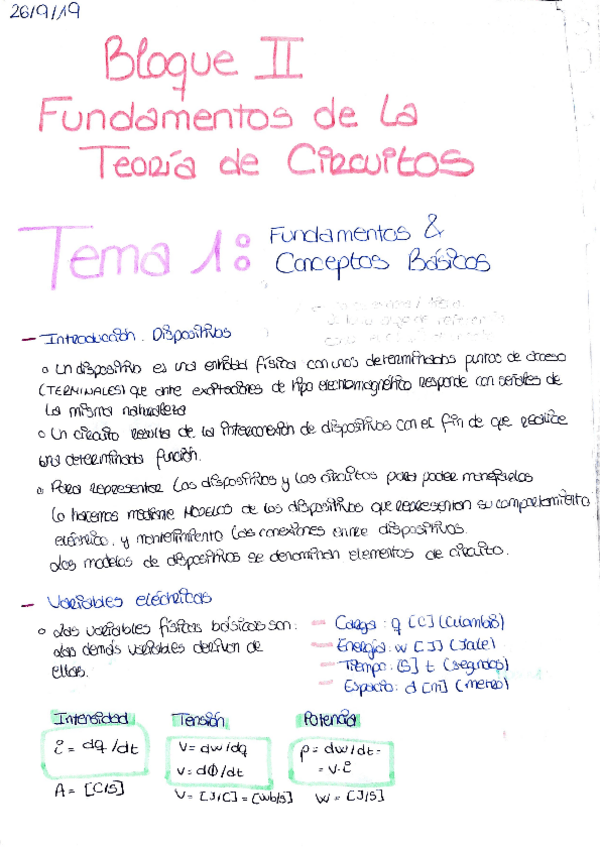 26/9/19
Bloque II
Fundamentos de la
Teoría de Circuitos
Tema 1: Fundamentos &
Conceptos Básicos
- Introducción. Dispositivos
o Un dispositivo es una entidad física con unos determinados puntos de acceso
(TERMINALES) que ante excitaciones de tipo electromagnético responde con señales de
la misma naturaleza
o Un circuito resulta de la interconexión de dispositivos con el fin de que realice
una determinada función.
o Para representar los dispositivos y los circuitos para poder manejarlos
lo hacemos mediante MODELOS de los dispositivos que representan su comportamiento
eléctrico, y mantenimiento las conexiones entre dispositivos.
Los modelos de dispositivos se denominan elementos de circuito.
- Variables eléctricas
o Las variables físicas básicas son:
Las demás variables derivan de
ellas.
- Carga: q [C] (Culombio)
- Energía: w [J] (Julio)
- Tiempo: [S] t (segundos)
- Espacio: d [m] (metro)
Intensidad Tensión Potencia
i = dq/dt V = dw/dq p = dw/dt =
V = dΦ/dt = V·i
A = [C/S] V = [J/C] = [Wb/S] W = [J/S]